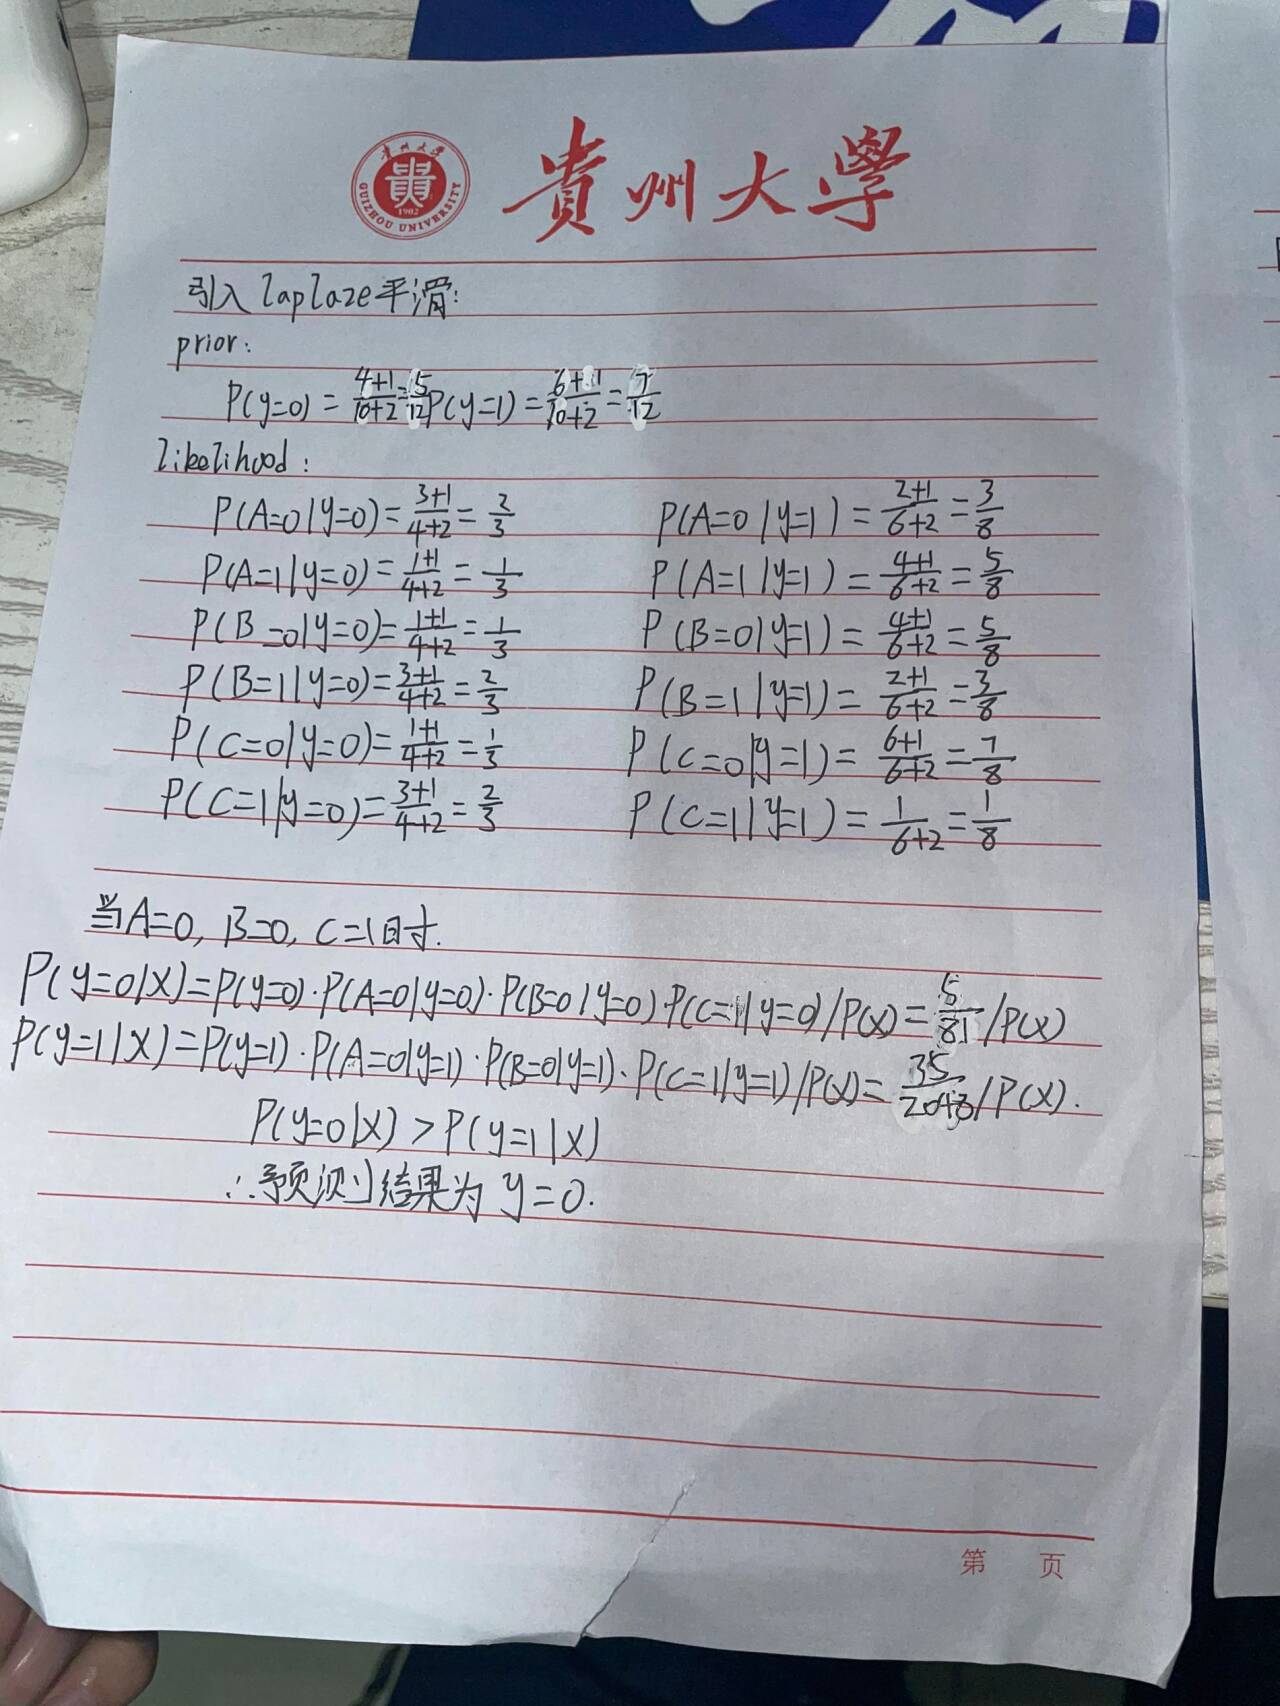 貴州大學
貴州大学
貴
1902
GUIZHOU UNIVERSITY
引入 laplaze平滑:
prior:
P(y=0) = \frac{4+1}{10+2} = \frac{5}{12} P(y=1) = \frac{6+1}{10+2} = \frac{7}{12}
likelihood:
P(A=0|y=0) = \frac{3+1}{4+2} = \frac{2}{3} P(A=0|y=1) = \frac{2+1}{6+2} = \frac{3}{8}
P(A=1|y=0) = \frac{1+1}{4+2} = \frac{1}{3} P(A=1|y=1) = \frac{4+1}{6+2} = \frac{5}{8}
P(B=0|y=0) = \frac{1+1}{4+2} = \frac{1}{3} P(B=0|y=1) = \frac{4+1}{6+2} = \frac{5}{8}
P(B=1|y=0) = \frac{3+1}{4+2} = \frac{2}{3} P(B=1|y=1) = \frac{2+1}{6+2} = \frac{3}{8}
P(C=0|y=0) = \frac{1+1}{4+2} = \frac{1}{3} P(C=0|y=1) = \frac{6+1}{6+2} = \frac{7}{8}
P(C=1|y=0) = \frac{3+1}{4+2} = \frac{2}{3} P(C=1|y=1) = \frac{1}{6+2} = \frac{1}{8}
当A=0, B=0, C=1时.
P(y=0|X)=P(y=0)·P(A=0|y=0)·P(B=0|y=0)·P(C=1|y=0)/P(X)=\frac{5}{81}/P(X)
P(y=1|X)=P(y=1)·P(A=0|y=1)·P(B=0|y=1)·P(C=1|y=1)/P(X)=\frac{35}{2048}/P(X).
P(y=0|X) > P(y=1|X)
∴预测结果为 y=0.
第 页